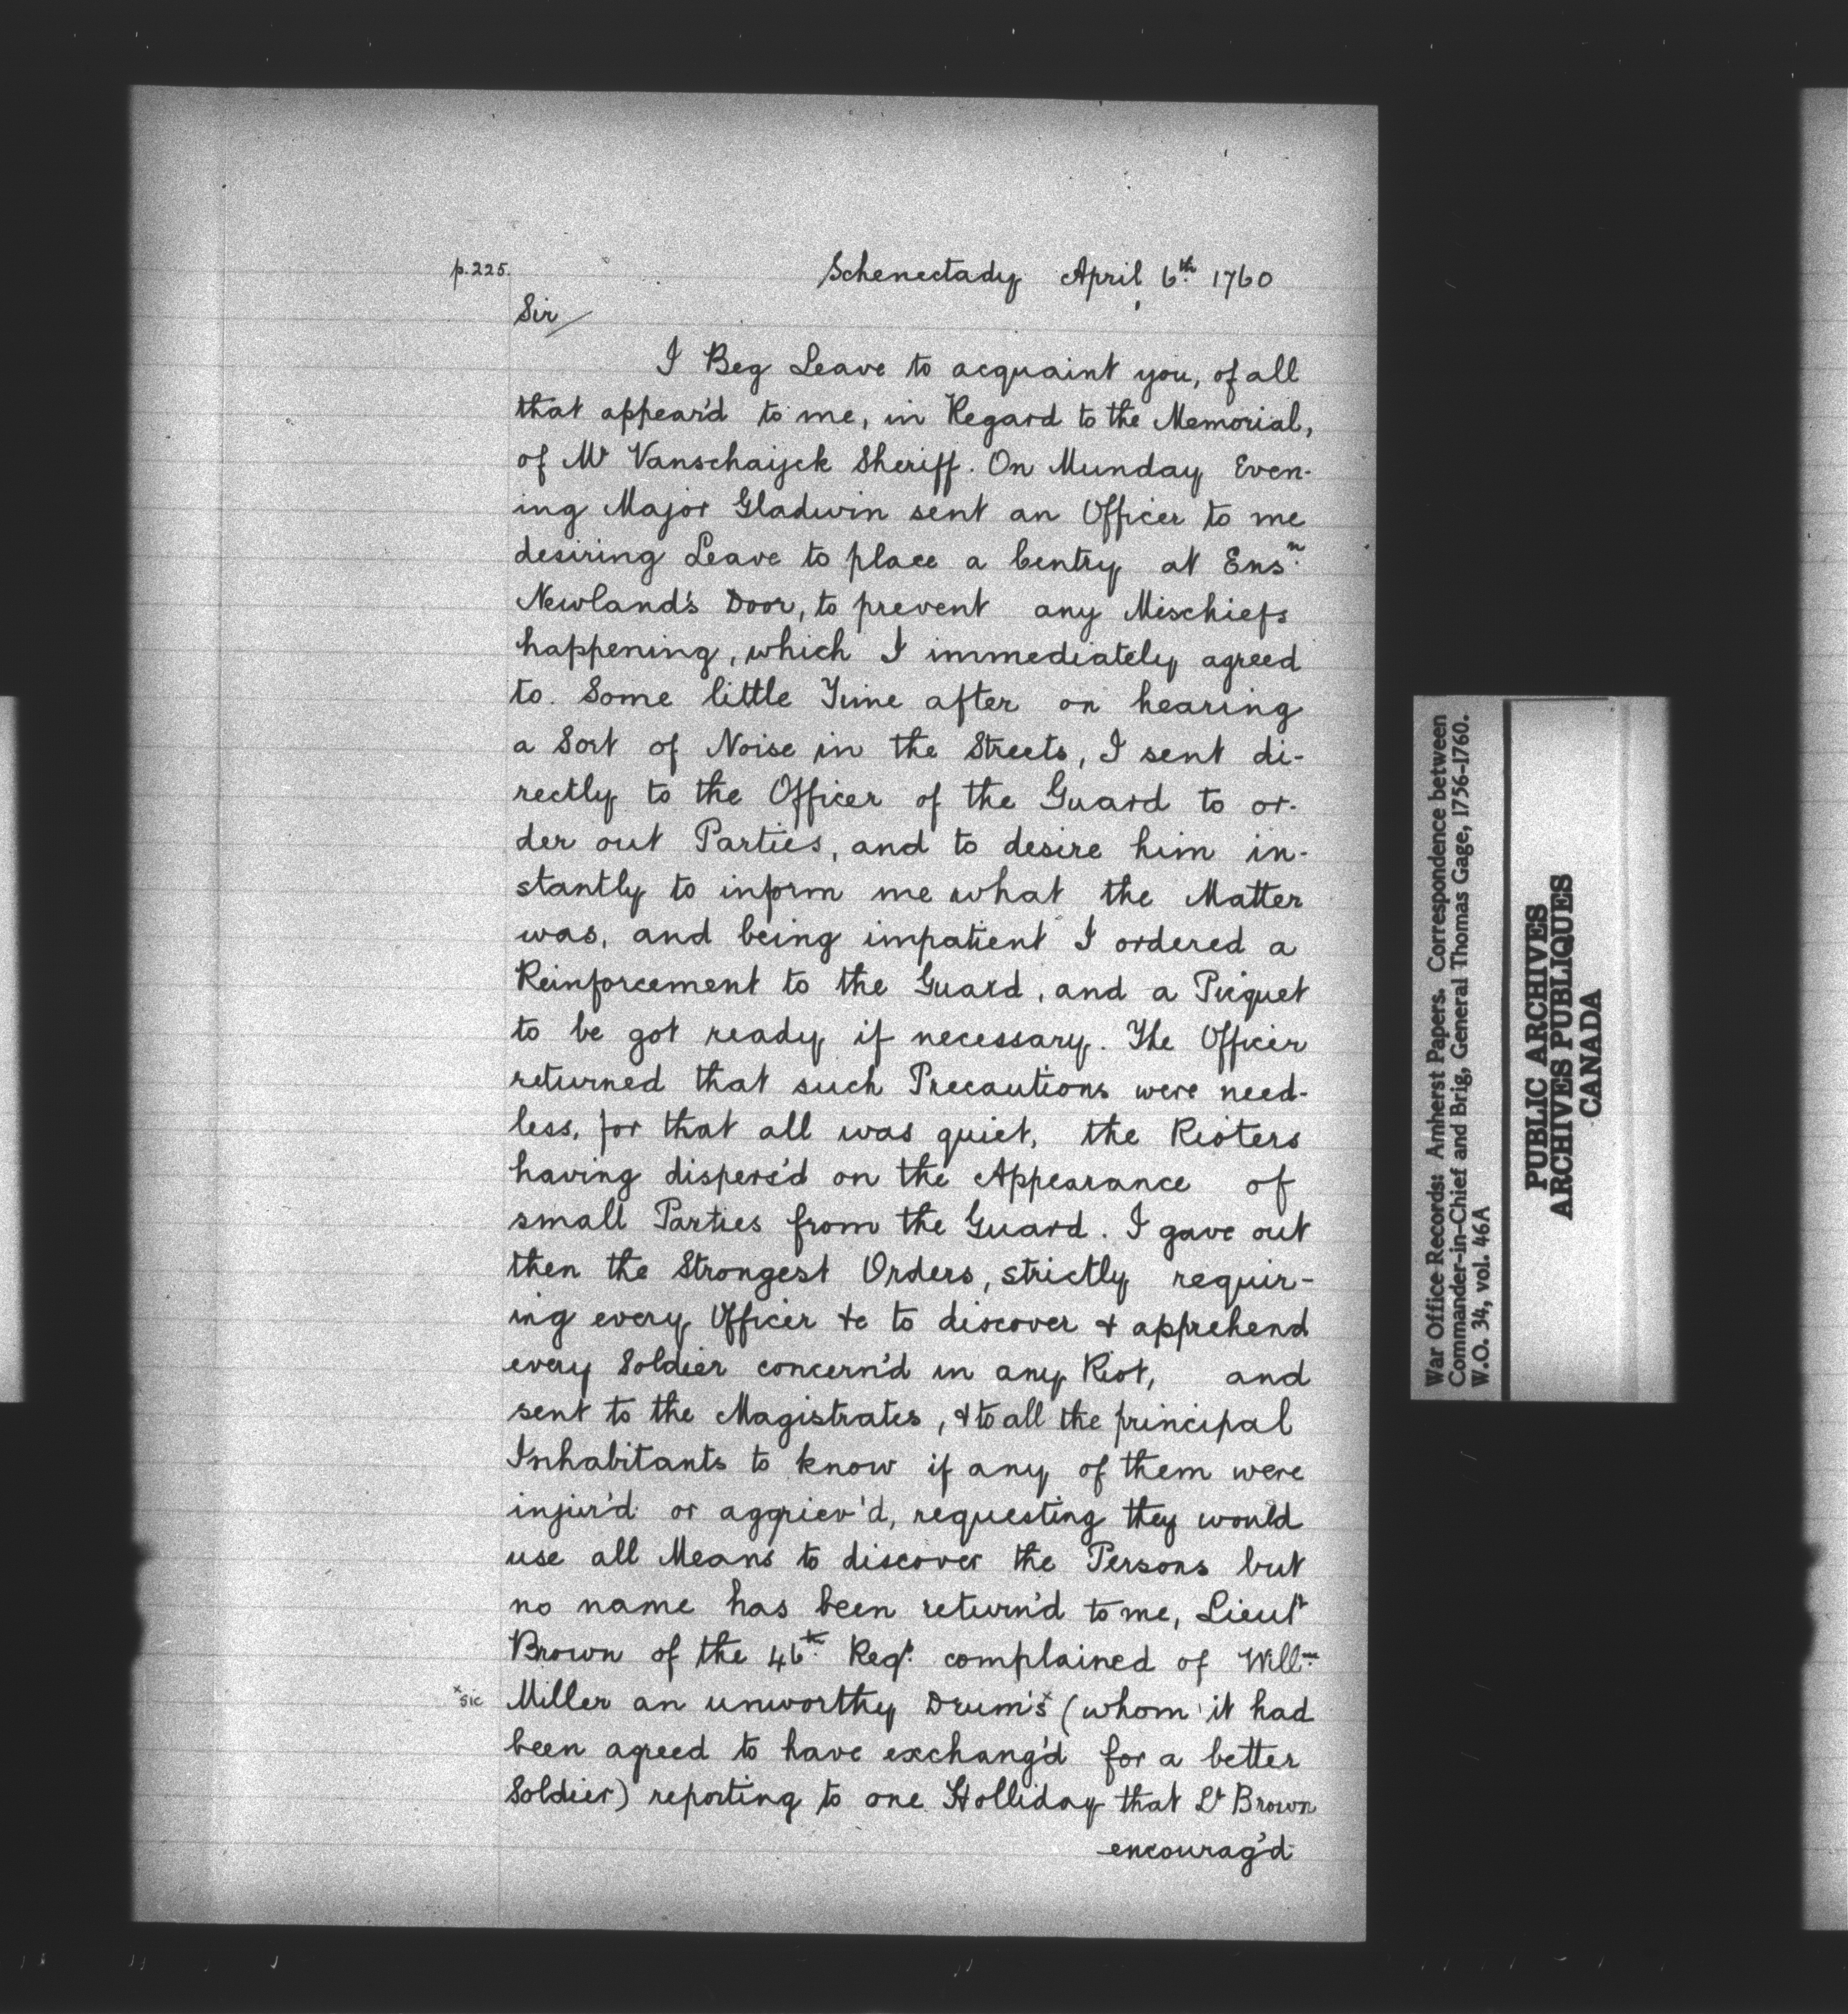 p.225.
Schenectady April 6th 1760
Sir/
I Beg Leave to acquaint you, of all
that appear'd to me, in Regard to the Memorial,
of Mr Vanschaijck Sheriff. On Munday Even-
ing Major Gladwin sent an Officer to me
desiring Leave to place a Centry at Ensn
Newland's Door, to prevent any Mischiefs
happening, which I immediately agreed
to. Some little Time after on hearing
a Sort of Noise in the Streets, I sent di-
rectly to the Officer of the Guard to or-
der out Parties, and to desire him in-
stantly to inform me what the Matter
was, and being impatient I ordered a
Reinforcement to the Guard, and a Picquet
to be got ready if necessary. The Officer
returned that such Precautions were need-
less, for that all was quiet, the Rioters
having dispers'd on the Appearance of
small Parties from the Guard. I gave out
then the Strongest Orders, strictly requir-
ing every Officer &c to discover & apprehend
every Soldier concern'd in any Riot, and
sent to the Magistrates, & to all the principal
Inhabitants to know if any of them were
injur'd or aggriev'd, requesting they would
use all Means to discover the Persons but
no name has been return'd to me, Lieut
Brown of the 46th Regt complained of Willm
x sic Miller an unworthy Drum's x (whom it had
been agreed to have exchang'd for a better
Soldier) reporting to one Holliday that Lt Brown
encourag'd
War Office Records: Amherst Papers. Correspondence between
Commander-in-Chief and Brig, General Thomas Gage, 1756-1760.
W.O. 34, vol. 46A
PUBLIC ARCHIVES
ARCHIVES PUBLIQUES
CANADA